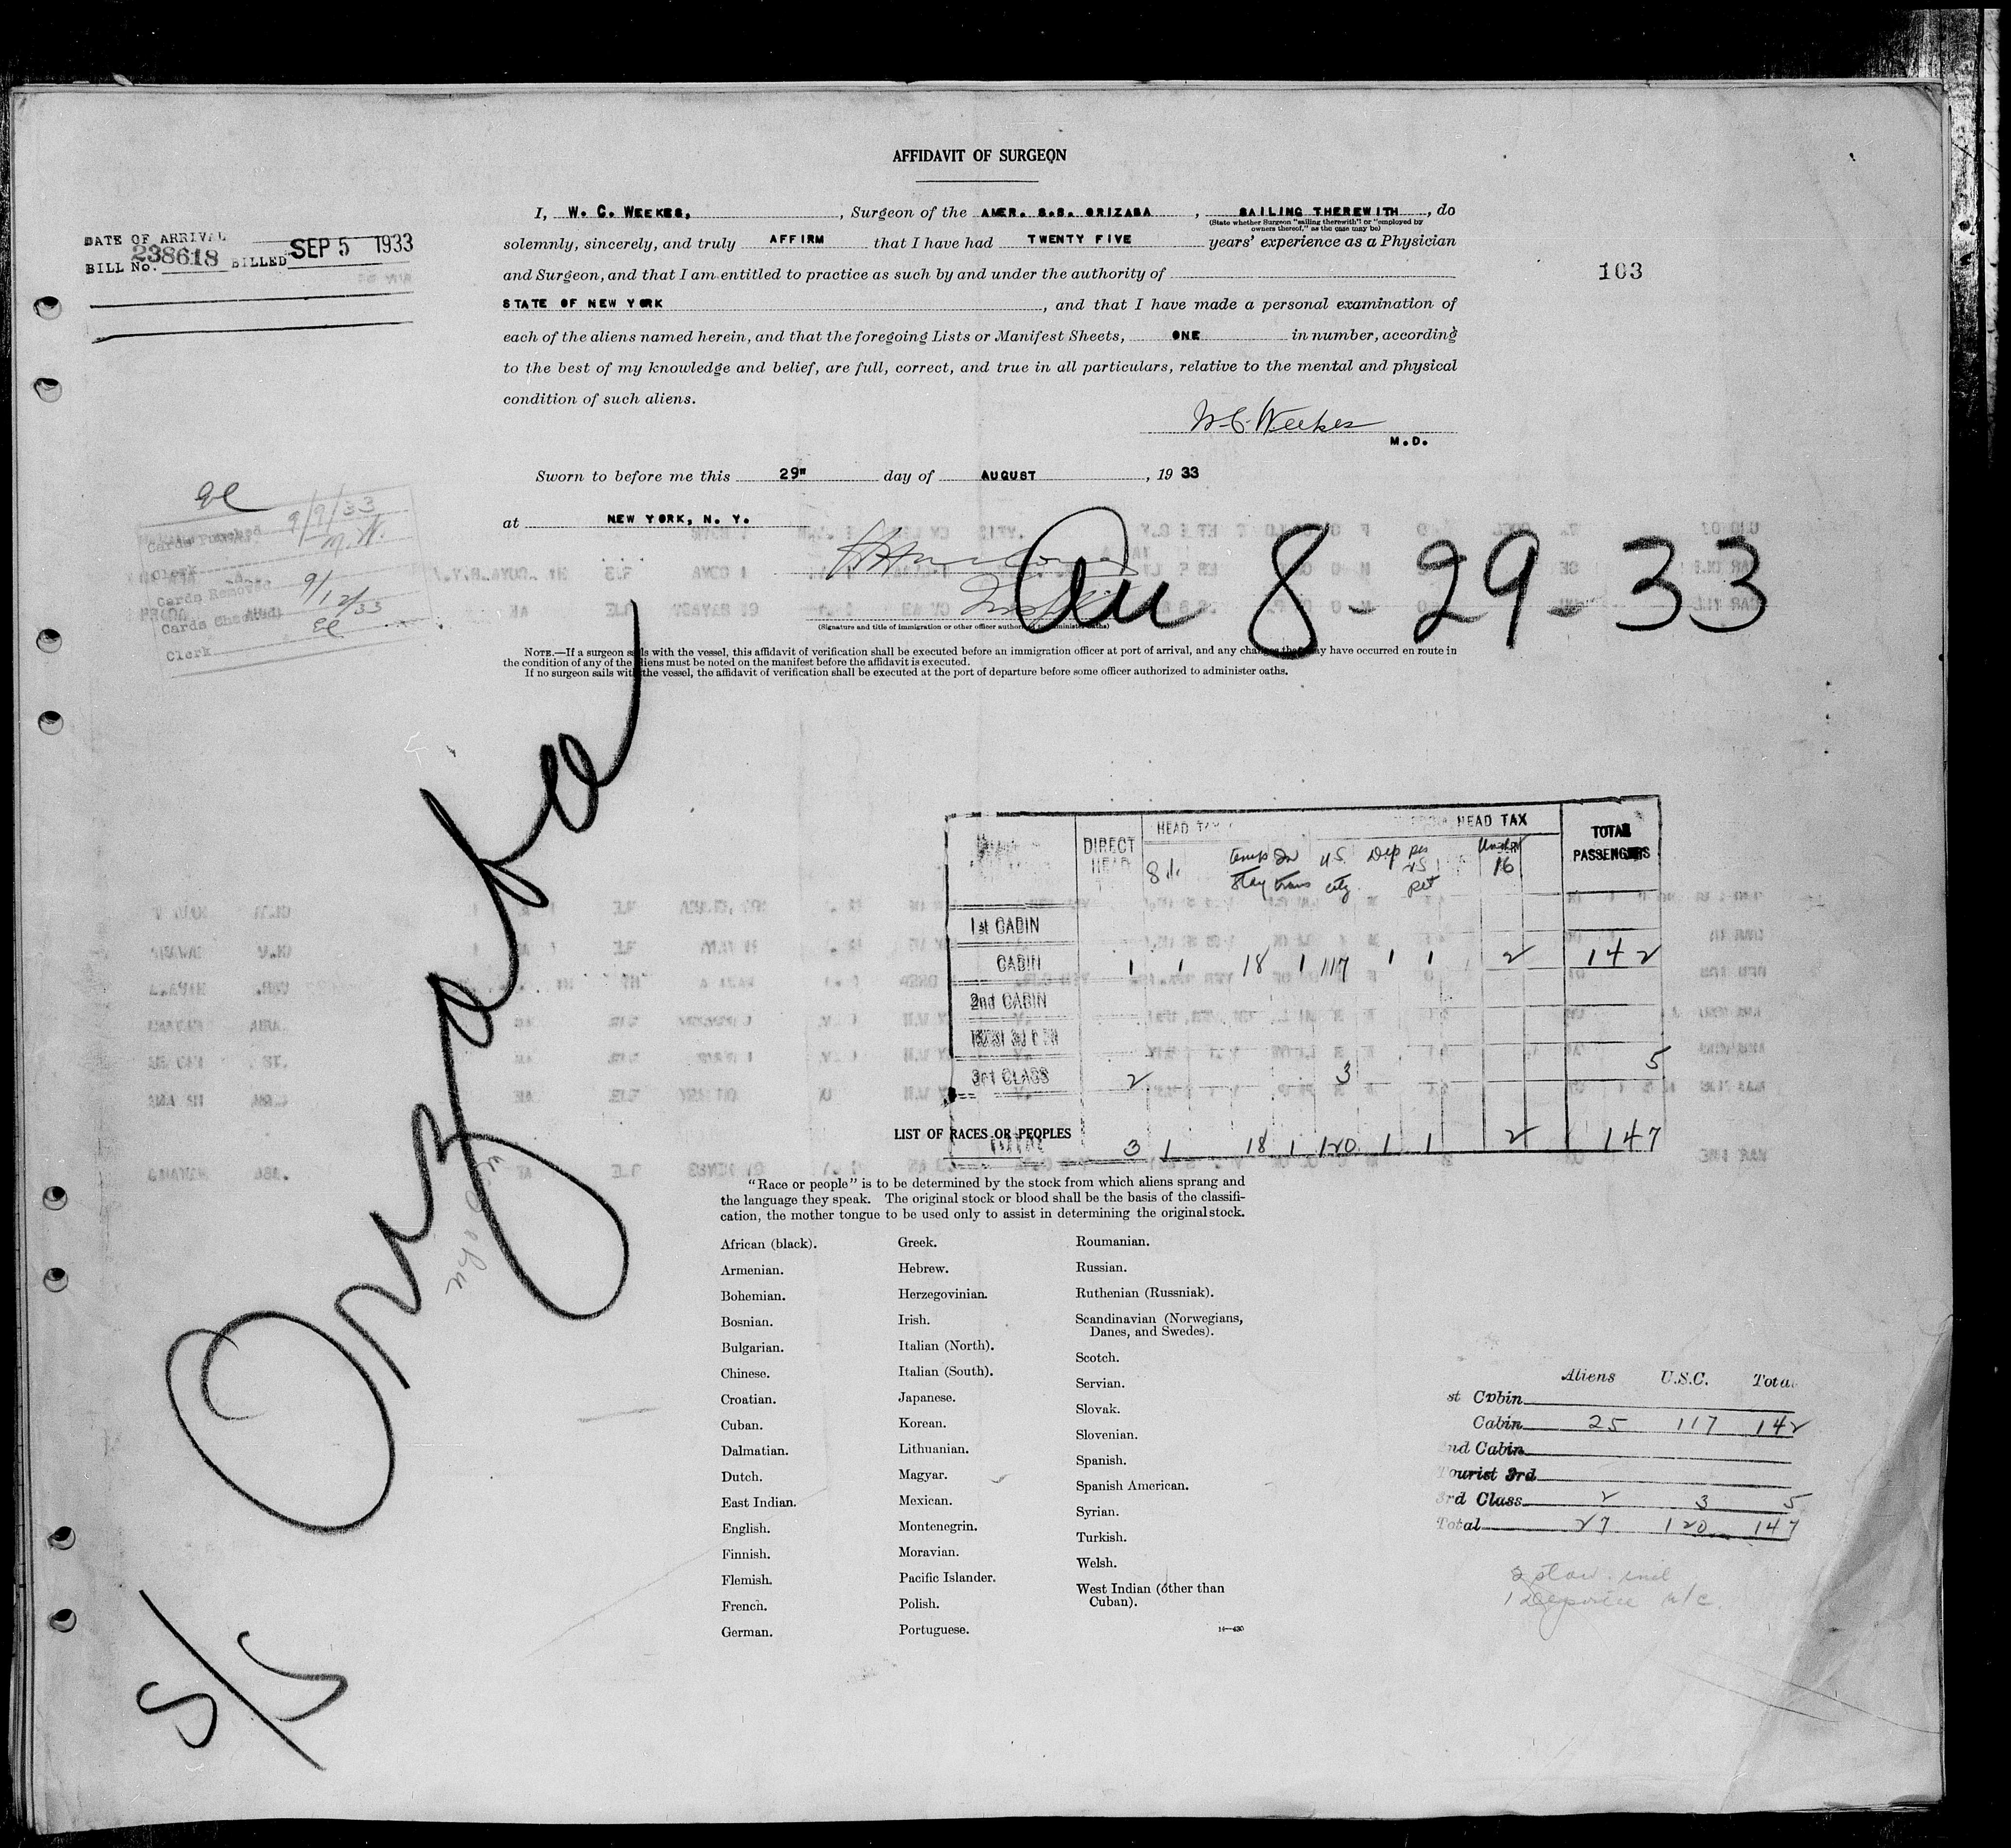 AFFIDAVIT OF SURGEON
I, W. C. WEEKES, , Surgeon of the AMER. S.S. ORIZABA , SAILING THEREWITH , do
(State whether Surgeon "sailing therewith" or "employed by
owners thereof," as the case may be)
solemnly, sincerely, and truly AFFIRM that I have had TWENTY FIVE years' experience as a Physician
and Surgeon, and that I am entitled to practice as such by and under the authority of
STATE OF NEW YORK , and that I have made a personal examination of
each of the aliens named herein, and that the foregoing Lists or Manifest Sheets, ONE in number, according
to the best of my knowledge and belief, are full, correct, and true in all particulars, relative to the mental and physical
condition of such aliens.
W.C. Weekes
M.D.
Sworn to before me this 29" day of AUGUST , 19 33
at NEW YORK, N. Y.
(Signature and title of immigration or other officer authorized to administer oaths)
NOTE.—If a surgeon sails with the vessel, this affidavit of verification shall be executed before an immigration officer at port of arrival, and any changes that may have occurred en route in
the condition of any of the aliens must be noted on the manifest before the affidavit is executed.
If no surgeon sails with the vessel, the affidavit of verification shall be executed at the port of departure before some officer authorized to administer oaths.
DATE OF ARRIVAL
BILL No. 238618 BILLED SEP 5 1933
103
Cards Punched 9/9/33
Clerk M.W.
Cards Removed
Cards Checked 9/12/33
Clerk
8-29-33
S/S Orizaba
DIRECT HEAD HEAD TAX HEAD TAX TOTAL PASSENGERS
temp stay trans U.S. city. Dep Under 16
1st CABIN
CABIN 1 1 18 1 117 1 1 2 142
2nd CABIN
3rd CLASS 2 3 5
TOTAL 3 1 18 1 120 1 1 2 147
LIST OF RACES OR PEOPLES
"Race or people" is to be determined by the stock from which aliens sprang and
the language they speak. The original stock or blood shall be the basis of the classifi-
cation, the mother tongue to be used only to assist in determining the original stock.
African (black).
Armenian.
Bohemian.
Bosnian.
Bulgarian.
Chinese.
Croatian.
Cuban.
Dalmatian.
Dutch.
East Indian.
English.
Finnish.
Flemish.
French.
German.
Greek.
Hebrew.
Herzegovinian.
Irish.
Italian (North).
Italian (South).
Japanese.
Korean.
Lithuanian.
Magyar.
Mexican.
Montenegrin.
Moravian.
Pacific Islander.
Polish.
Portuguese.
Roumanian.
Russian.
Ruthenian (Russniak).
Scandinavian (Norwegians,
Danes, and Swedes).
Scotch.
Servian.
Slovak.
Slovenian.
Spanish.
Spanish American.
Syrian.
Turkish.
Welsh.
West Indian (other than
Cuban).
14—430
Aliens U.S.C. Total
st Cabin
Cabin 25 117 142
nd Cabin
Tourist 3rd
3rd Class 2 3 5
Total 27 120 147